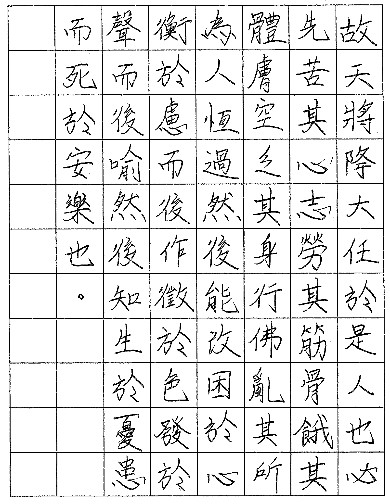 故天將降大任於是人也必
先苦其心志勞其筋骨餓其
體膚空乏其身行佛亂其所
為人恆過然後能改困於心
衡於慮而後作徵於色發於
聲而後喻然後知生於憂患
而死於安樂也。